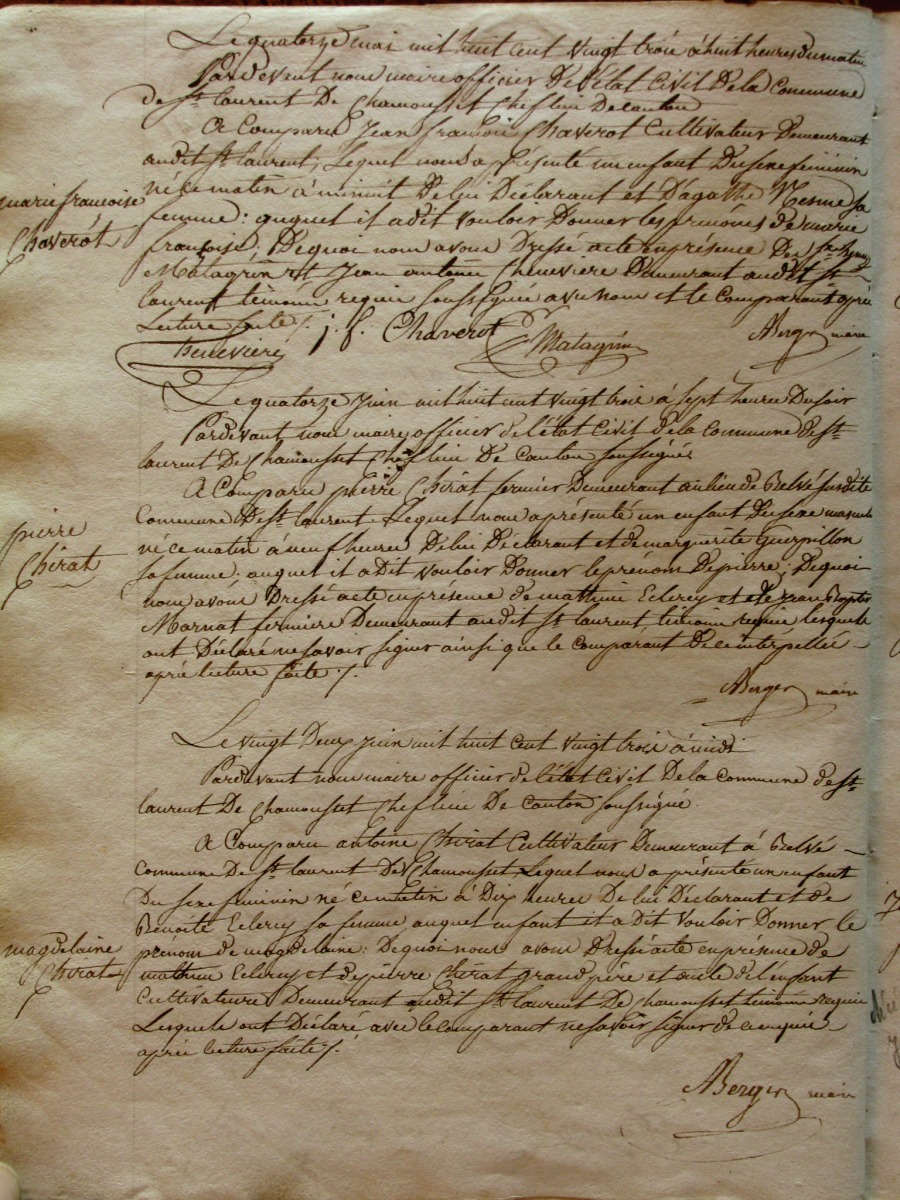 Le quatorze mai mil huit cent vingt trois à huit heures du matin
Pardevant nous maire officier De l'état Civil De la Commune
de St. laurent De Chamousset Chef lieu De Canton
A Comparu Jean françois Chaverot Cultivateur Demeurant
audit St. laurent, Lequel nous a présenté un enfant Du sexe féminin
né ce matin à minuit De lui Déclarant et D'agathe Vesme sa
marie francoise
Chaverót
femme : auquel il a dit vouloir Donner les prénoms de marie
françoise. De quoi nous avons Dressé acte en présence De
Matagrin et Jean antoine Chenevière Demeurant audit St.
laurent témoins requis soussignés avec nous et le Comparant après
Lecture faite /.
Chenevière j. f. Chaverot Matagrin Berger maire
Le quatorze juin mil huit cent vingt trois à sept heures Du soir
Pardevant nous maire officier de l'état Civil de la Commune de St.
laurent De Chamousset Chef lieu De Canton soussigné
A Comparu pierre Chirat fermier Demeurant au lieu de Belvé susdite
pierre
Chirat
Commune De St. laurent. Lequel nous a présenté un enfant Du sexe masculin
né ce matin à neuf heures De lui Déclarant et de marguerite Guerpillon
sa femme, auquel il a Dit vouloir Donner le prénom de pierre ; De quoi
nous avons Dressé acte en présence de mathieu Eclercy et de jean Baptiste
Marnat fermiers Demeurant audit St. laurent témoins requis lesquels
ont Déclaré ne savoir signer ainsi que le Comparant De ce interpellés
après lecture faite /.
Berger maire
Le vingt Deux juin mil huit cent vingt trois à midi
Pardevant nous maire officier de l'état Civil De la Commune de St.
laurent De Chamousset Chef lieu De Canton soussigné
A Comparu antoine Chirat Cultivateur Demeurant à Belvé
Commune De St. laurent De Chamousset Lequel nous a présenté un enfant
Du sexe féminin né ce matin à Dix heures De lui Déclarant et de
Benoite Eclercy sa femme auquel enfant il a Dit vouloir Donner le
magdelaine
Chirat
prénom de magdelaine : De quoi nous avons Dressé acte en présence de
mathieu Eclercy et de pierre Chirat grand père et oncle de l'enfant
Cultivateurs Demeurant audit St. laurent De Chamousset témoins requis
Lesquels ont Déclaré avec le comparant ne savoir signer de ce requis
après lecture faite /.
Berger maire